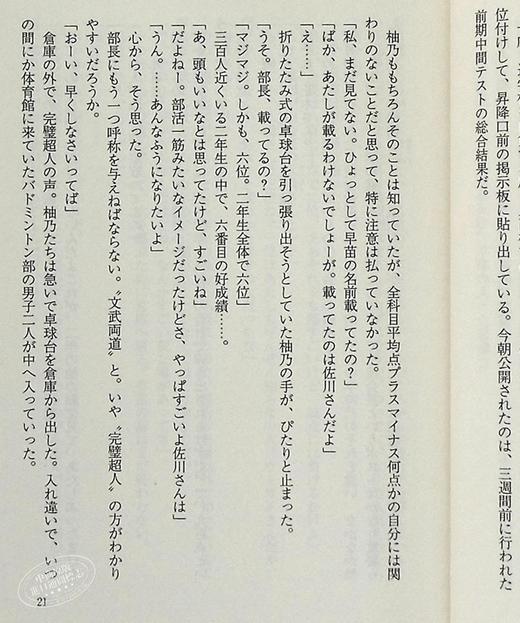 位付けして、昇降口前の掲示板に貼り出している。今朝公開されたのは、三週間前に行われた
前期中間テストの総合結果だ。
柚乃ももちろんそのことは知っていたが、全科目平均点プラスマイナス何点かの自分には関
わりのないことだと思って、特に注意は払っていなかった。
「私、まだ見てない。ひょっとして早苗の名前載ってたの?」
「ばか、あたしが載るわけないでしょーが。載ってたのは佐川さんだよ」
「え……」
折りたたみ式の卓球台を引っ張り出そうとしていた柚乃の手が、ぴたりと止まった。
「うそ。部長、載ってるの?」
「マジマジ。しかも、六位。二年生全体で六位」
三百人近くいる二年生の中で、六番目の好成績……。
「あ、頭もいいなとは思ってたけど、すごいね」
「だよねー。部活一筋みたいなイメージだったけどさ、やっぱすごいよ佐川さんは」
「うん。……あんなふうになりたいよ」
心から、そう思った。
部長にもう一つ呼称を与えねばならない。〝文武両道〟と。いや〝完璧超人〟の方がわかり
やすいだろうか。
「おーい、早くしなさいってば」
倉庫の外で、完璧超人の声。柚乃たちは急いで卓球台を倉庫から出した。入れ違いで、いつ
の間にか体育館に来ていたバドミントン部の男子二人が中へ入っていった。
21